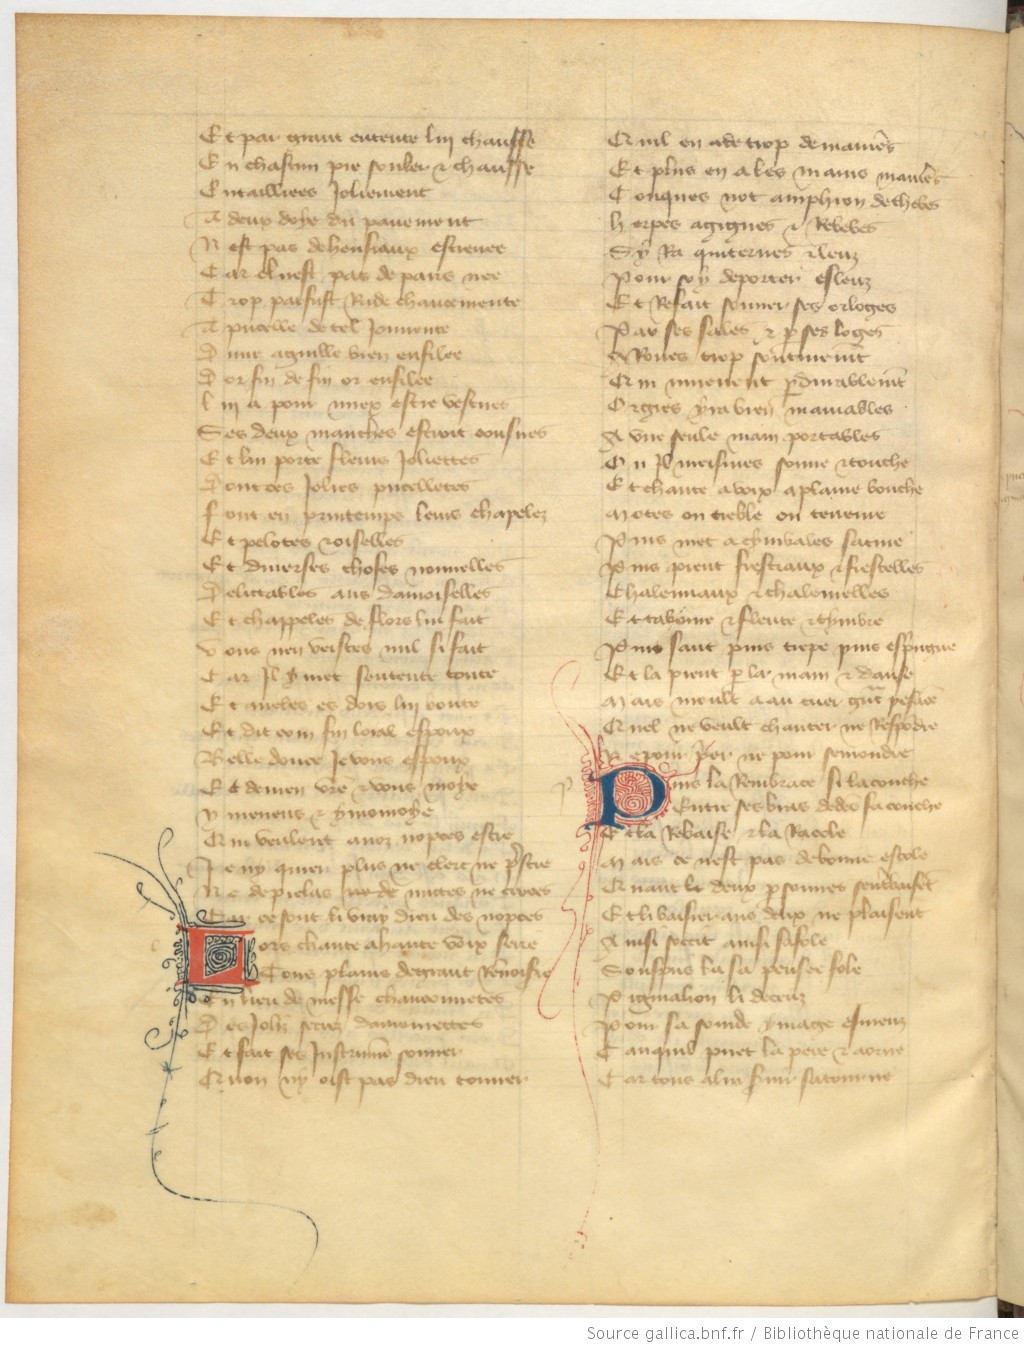 Et par grant entente lui chausse
En chascun pie souler & chausse
Entailliees Joliement
A deux doye du pavement
N est pas de houseaux estrenee
Car el nest pas de paris nee
Trop par fust Rude chaucemente
A pucelle de tel Jouvente
D une aguille bien enfilee
D or fin de fin or enfilee
lui a pour mieux estre vestues
Ses deux manches estroit cousues
Et lui porte fleurs Joliettes
Dont ces Jolies pucelletes
font en printemps leurs chapelez
Et pelotes & oiselles
Et diverses choses nouvelles
Delictables aus damoiselles
Et chappeles de flors lui fait
vous nen veistes nul si fait
Car Il y met sentente toute
Et aneles es dois lui boute
Et dit com fin loial espoux
Belle douce Je vous espoux
Et devien vre & vous moye
ymeneus & ymomoye
Qui veulent a noz nopces estre
Je ny quier plus ne clerc ne pstre
Ne de prelas ne de mittes ne croces
Car ce sont li vray dieu des nopces
Lors chante a haute voix serie
Toute plaine de grant Renvoisie
En lieu de messe chanconnetes
Des Jolis secrez damourettes
Et fait ses Instrumens sonner
Quon ny oist pas dieu tonner
Quil en a de trop de manieres
Et plus en a les mains manieres
Conques not amphion de thebes
herpes a gigues & Rebebes
Sy Ra quiternes & leuz
Pour soy deporter esleuz
Et Refait sonner ses orloges
Par ses sales & p ses loges
A Roues trop soutivement
Qui mueuent pdurablement
Orgues yra bien maniables
A une seule main portables
Ou Il meismes soufle & touche
Et chante a voix a plaine bouche
Motes ou treble ou teneure
Puis met a cymbales sa cure
Puis prent frestiaux & frestelles
Chalemiaux & chalemelles
Et tabour & fleute & tymbre
Puis saut puis trepe puis espingue
Et la prent p la main & danse
Mais moult a au cuer gnt pesance
Quel ne veult chanter ne Respodre
Ne pour pier ne pour semondre
Puis la Rembrace si la couche
Entre ses bras dedes sa couche
Et la Rebaise & la Racole
Mais ce nest pas de bonne escole
Quant li deux psonnes sentrebaisent
Et li baisier aus deux ne plaisent
Ainsi socit ainsi safole
Souspris la sa pensee fole
Pigmalion li deceuz
Pour sa sourde ymage esmeuz
Tanquil puet la pere & aorne
Car tous a lui Seruir satourne